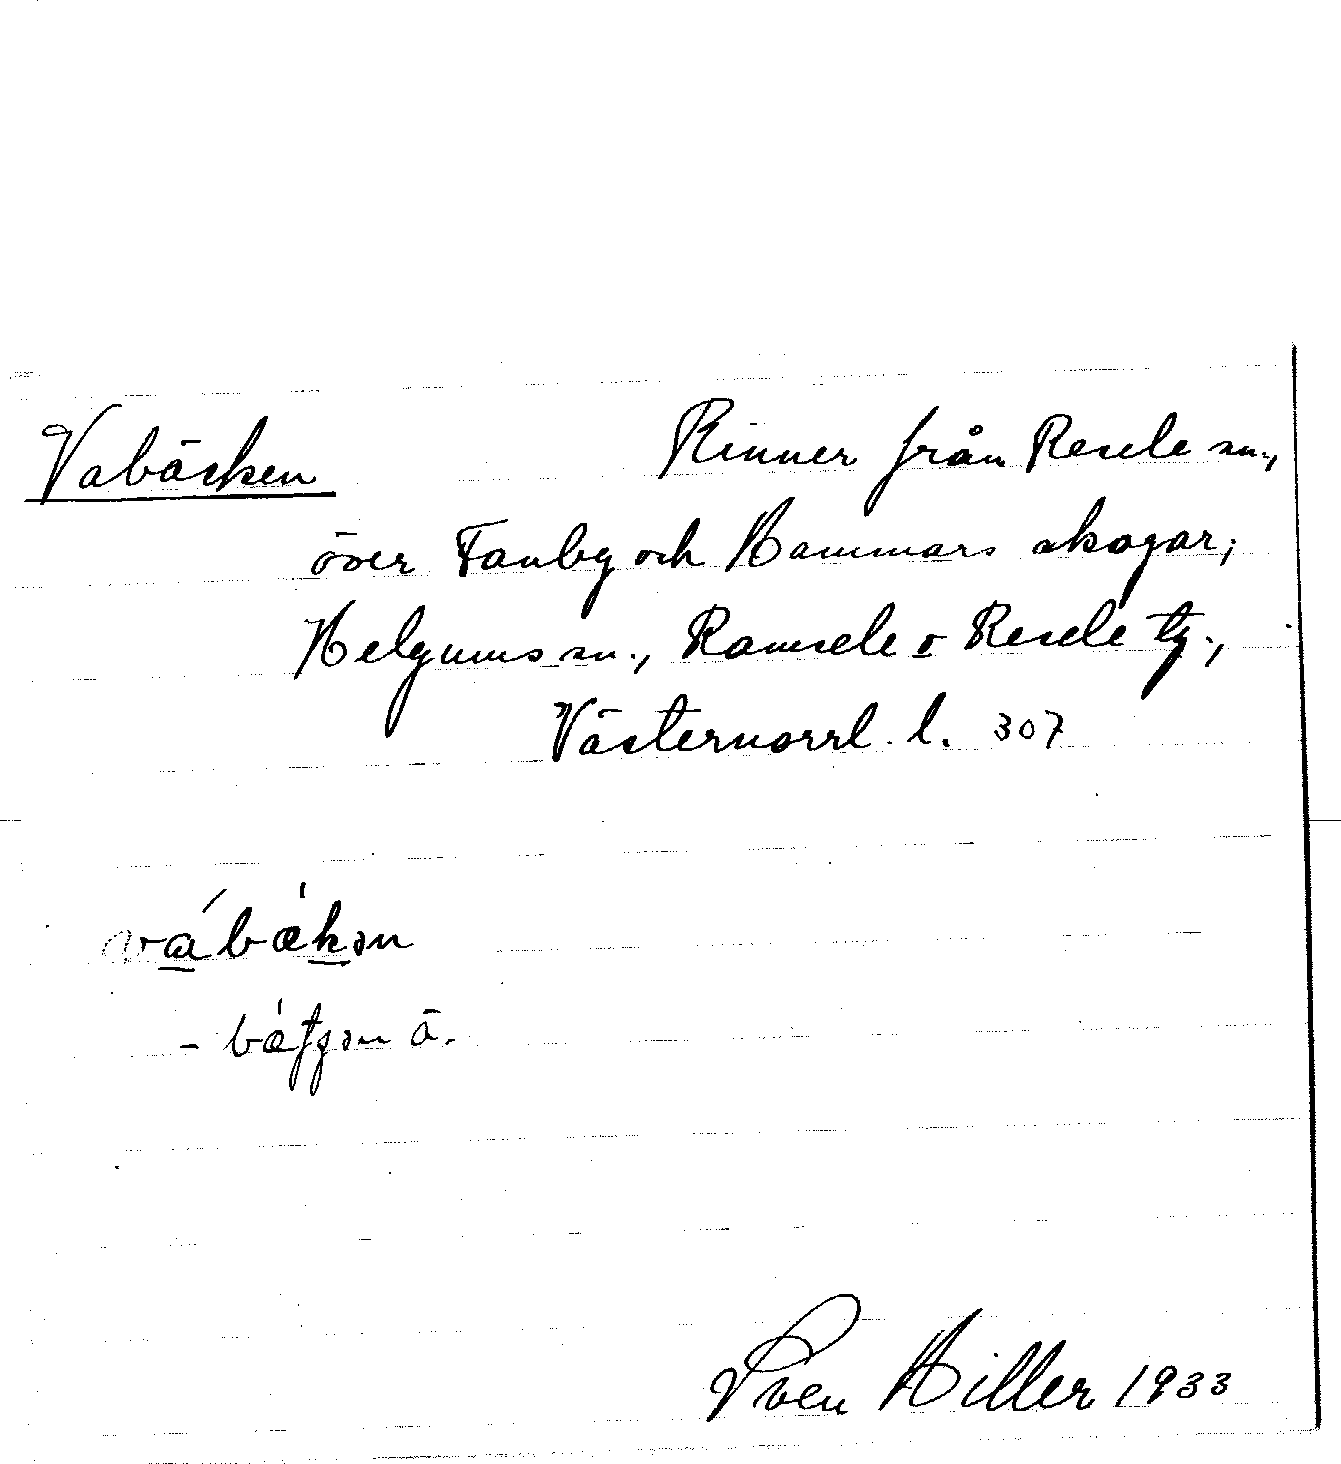 Vabäcken Rinner från Resele sn.,
över Fanby och Hammars skogar;
Helgums sn., Ramsele o Resele tg.,
Västernorrl. l. 307
vábæ̀kən
- ä.
Sven Hiller 1933